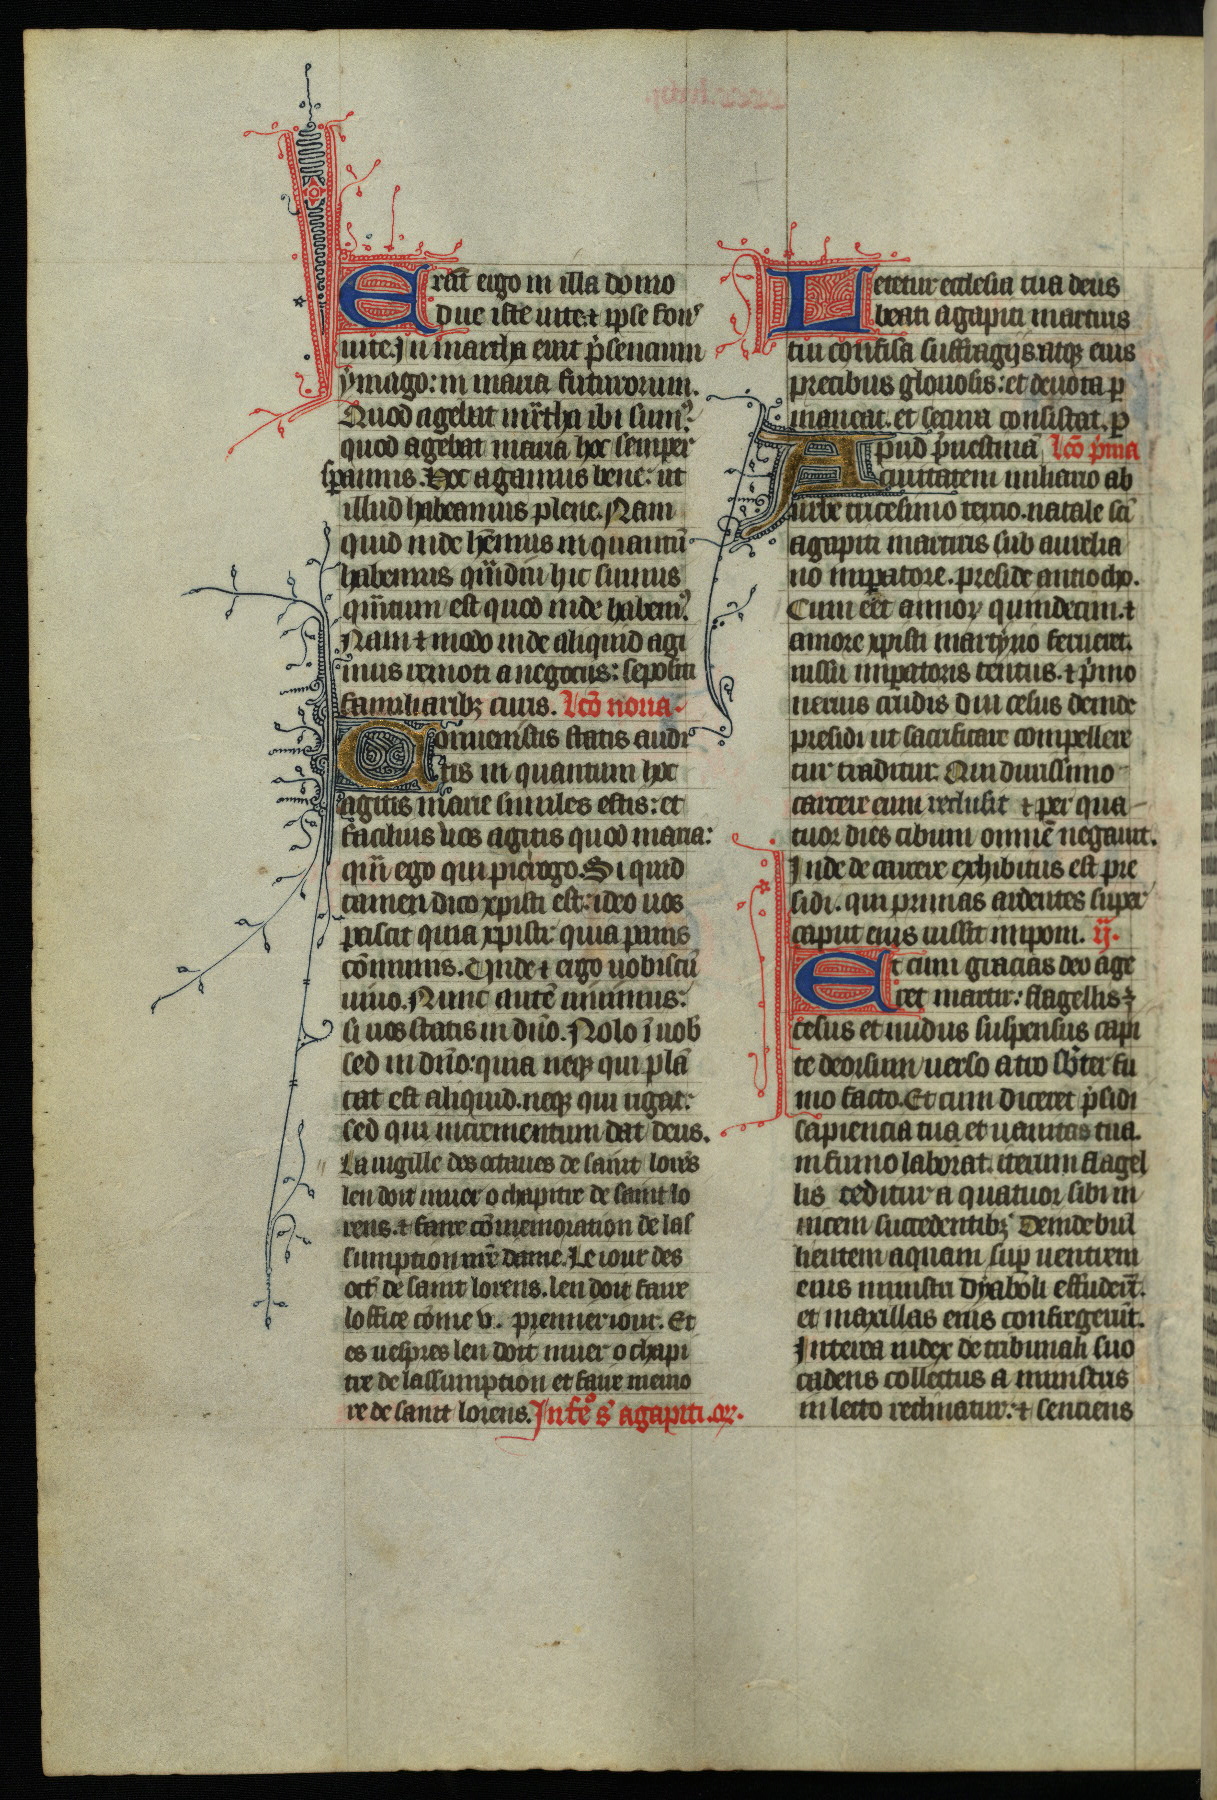 Erāt ergo in illa domo
due iste uite. ⁊ ipse fons
uite. In martha erat p̄sencium
ymago: in maria futurorum.
Quod agebat mr̄tha ibi sumꝰ.
quod agebat maria hoc semper
sperauimus. Hoc agamus bene: ut
illud habeamus plene. Nam
quid inde hēmus in quantū
habemus qm̄diu hic sumus
qn̄tum est quod inde habemꝰ.
Nam ⁊ modo inde aliquid agi
mus remoti a negociis: sepositi
familiaribꝫ curis. Lcō nona.
Conuenistis statis audi
tis in quantum hoc
agitis marie similes estis: et
facilius uos agitis quod maria:
qm̄ ego qui prerogo. Si quid
tamen dico xpisti est: ideo uos
pascit quia xpisti: quia panis
cōmunis. Unde ⁊ ergo uobiscū
uiuo. Nunc autē uiuimus:
si uos statis in dn̄o. Nolo ī uob
sed in dn̄o: quia neqꝫ qui plā
tat est aliquid. neqꝫ qui rigat:
sed qui incrementum dat deus.
La uigille des octaues de saint lorēs
len doit muer o chapitre de saint lo
rens. ⁊ faire cōmemoration de las
sumption nr̄e dame. Le iour des
oct̄ de saint lorens. len doit faire
loffice cōme v. premier iour. Et
es uespres len doit muer o chapi
tre de lassumption et faire memo
re de saint lorens. In fēo s' agapiti. or̄.
Letetur ecclesia tua deus
beati agapiti martiris
tui confisa suffragijs. atqꝫ eius
precibus gloriosis: et deuota ꝑ
maneat. et secura consistat. ꝑ
Apud p̄nestinā Lcō p̄ma
ciuitatem miliario ab
urbe tricesimo tercio. natale sc̄i
agapiti martiris sub aurelia
no imꝑatore. preside antiocho.
Cum eēt annoꝝ quindecim. ⁊
amore xpisti martyrio ferueret.
iussu imꝑatoris tentus. ⁊ p̄mo
neruis crudis diu cesus deinde
presidi ut sacrificare compellere
tur traditur. Qui durissimo
carcere eum reclusit ⁊ per qua
tuor dies cibum omnē negauit.
Inde de carcere exhibitus est pre
sidi. qui prunas ardentes super
caput eius iussit imponi. ij.
Et cum gracias deo age
ret martir: flagellis ⁊
cesus et nudus suspensus capi
te deorsum uerso atro sb̄ter fu
mo facto. Et cum diceret p̄sidi
sapiencia tua et uanitas tua.
in fumo laborat. iterum flagel
lis ceditur a quatuor sibi in
uicem succedentibꝫ Deinde bul
lientem aquam suꝑ uentrem
eius ministri dyaboli effuderūt.
et maxillas eius confregerūt.
Interea iudex de tribunali suo
cadens collectus a ministris
in lecto reclinatur. ⁊ senciens